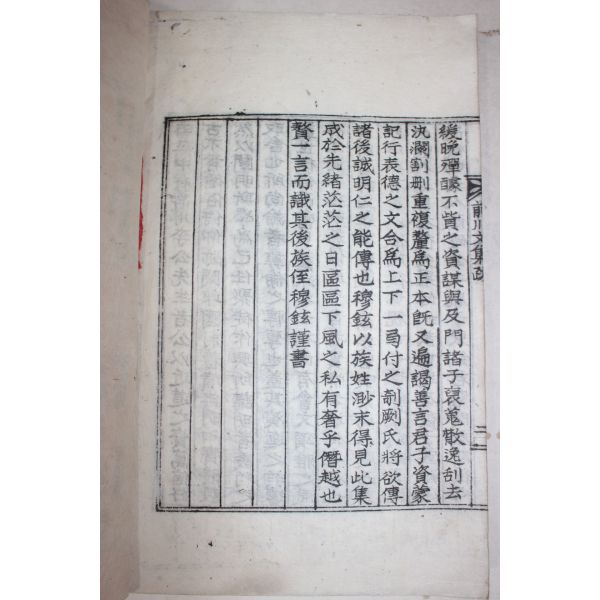 前川文集跋
二
緩晩殫醵不貲之資謀與及門諸子裒蒐散逸刮去
汍瀾割刪重複釐爲正本旣又遍謁善言君子資蒙
記行表德之文合爲上下一局付之剞劂氏將欲傳
諸後誠明仁之能傳也穆鉉以族姓渺末得見此集
成於先緖茫茫之日區區下風之私有奢乎僭越也
贅一言而識其後族侄穆鉉謹書